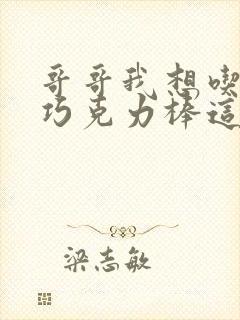 哥哥我想喫
巧克力棒這
梁志敏